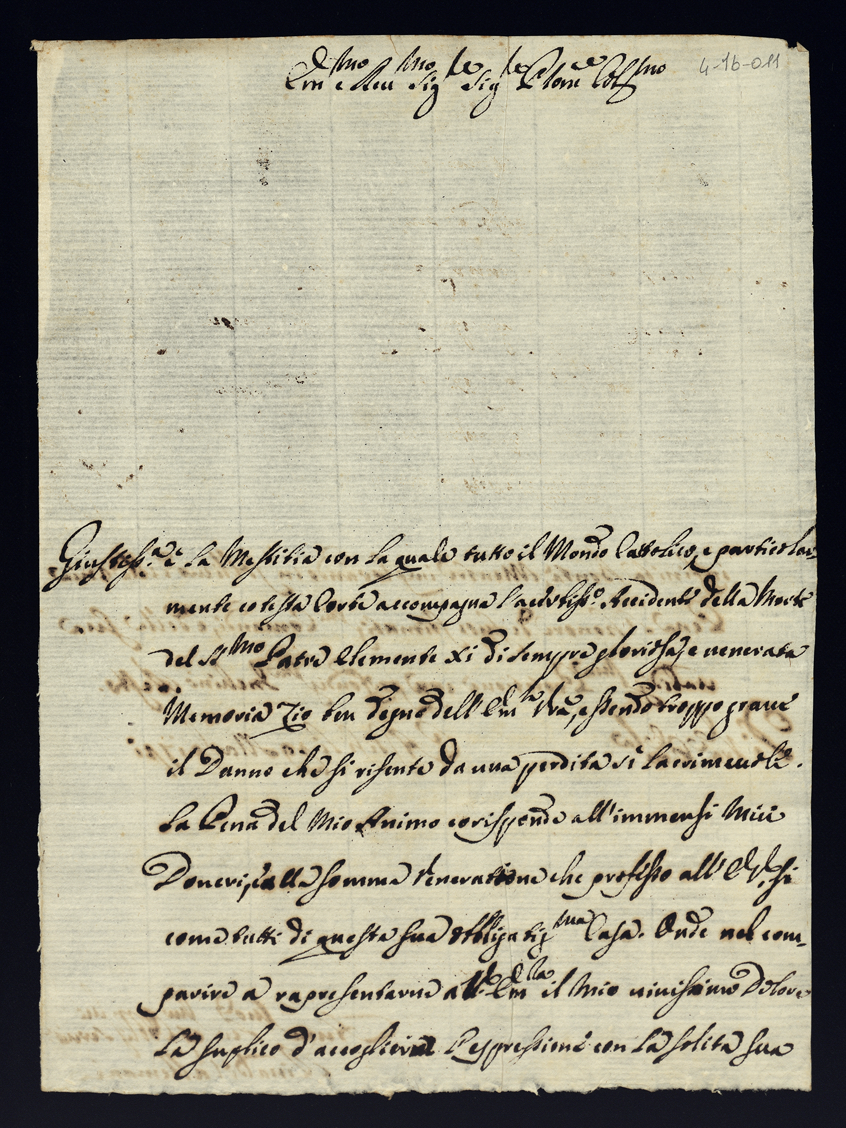 Em.mo e Reu.mo Sig.re Sig.re P.rone Col.mo
4-16-011
Giustiss.a è la Mestitia con la quale tutto il Mondo Cattolico, e particolar-
mente cotesta Corte accompagna l'acerbiss.o Accidente della Morte
del S.mo Padre Clemente XI di sempre gloriosa, e venerata
Memoria Zio ben degno dell' Em.za V.ra, essendo troppo graue
il Danno che si risente da una perdita sì lacrimeuole.
La Pena del Mio Animo corisponde all'immensi Miei
Doueri, e alla somma Veneratione che professo all' E.V. si
come tutti di questa sua obbligatis.ma Casa. Onde nel com-
parire a rapresentarne all' Em. il Mio uiuissimo Dolore
La suplico d'accoglier l'espressione con la solita sua